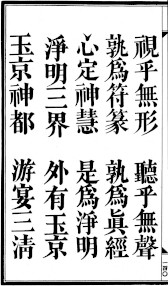 視乎無形　聽乎無聲
孰爲符篆　孰爲眞經
心定神慧　是爲淨明
淨明三界　外有玉京
玉京神都　游宴三淸